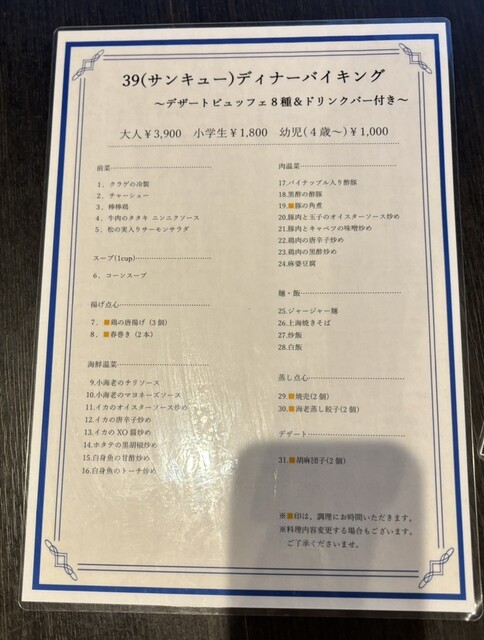 39(サンキュー)ディナーバイキング
～デザートビュッフェ８種＆ドリンクバー付き～
大人￥3,900　小学生￥1,800　幼児(４歳～)￥1,000
前菜
１．クラゲの冷製
２．チャーシュー
３．棒棒鶏
４．牛肉のタタキ ニンニクソース
５．松の実入りサーモンサラダ
スープ(1cup)
６．コーンスープ
揚げ点心
７．■鶏の唐揚げ (３個)
８．■春巻き (２本)
海鮮温菜
9.小海老のチリソース
10.小海老のマヨネーズソース
11.イカのオイスターソース炒め
12.イカの唐辛子炒め
13.イカの XO 醤炒め
14.ホタテの黒胡椒炒め
15.白身魚の甘酢炒め
16.白身魚のトーチ炒め
肉温菜
17.パイナップル入り酢豚
18.黒酢の酢豚
19.■豚の角煮
20.豚肉と玉子のオイスターソース炒め
21.豚肉とキャベツの味噌炒め
22.鶏肉の唐辛子炒め
23.鶏肉の黒酢炒め
24.麻婆豆腐
麺・飯
25.ジャージャー麺
26.上海焼きそば
27.炒飯
28.白飯
蒸し点心
29.■焼売(２個)
30.■海老蒸し餃子(２個)
デザート
31.■胡麻団子(２個)
※■印は、調理にお時間いただきます。
※料理内容変更する場合もございます。
ご了承くださいませ。